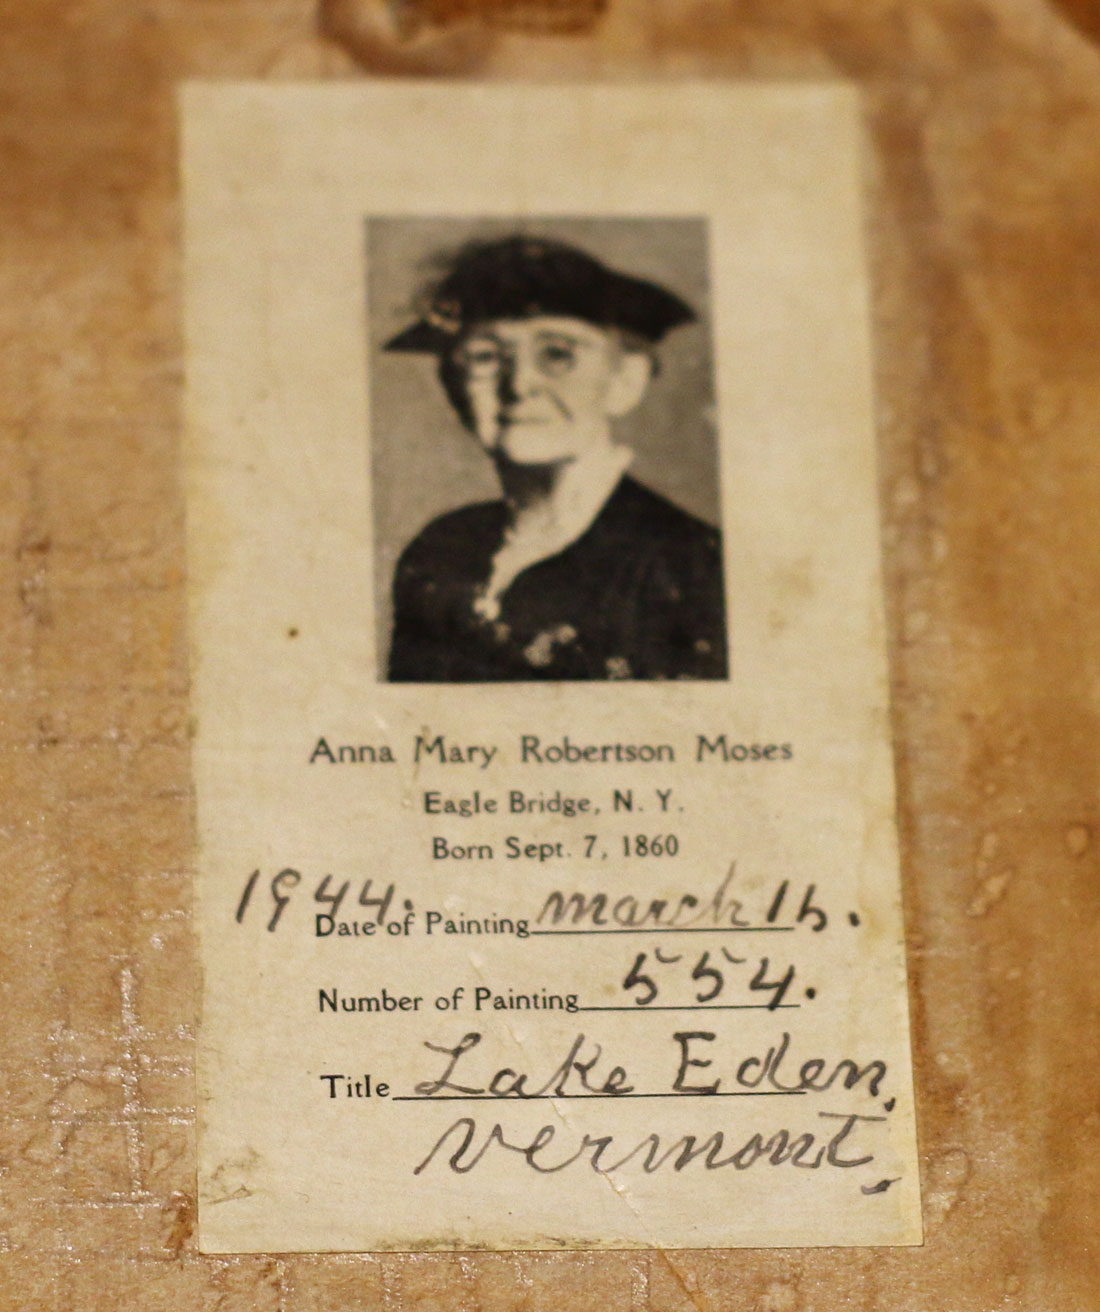 Anna Mary Robertson Moses
Eagle Bridge, N. Y.
Born Sept. 7, 1860
1944.
Date of Painting march 16.
Number of Painting 554.
Title Lake Eden,
vermont.